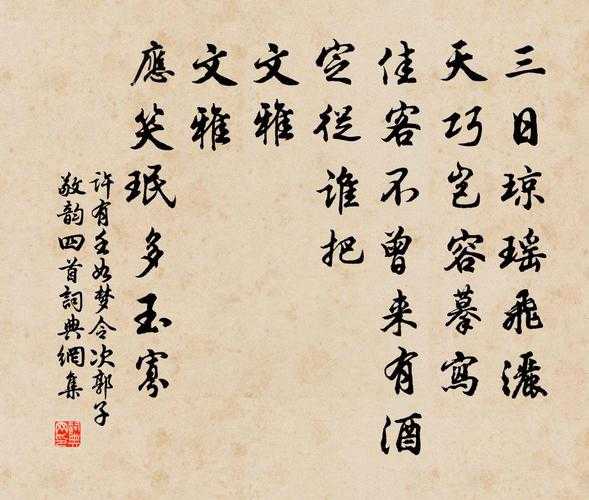 三日琼瑶飛灑
天巧岂容摹寫
佳客不曾来有酒
定從誰把
文雅
文雅
應笑珉多玉寡
许有壬如梦令次郭子
敬韵四首詞典網集